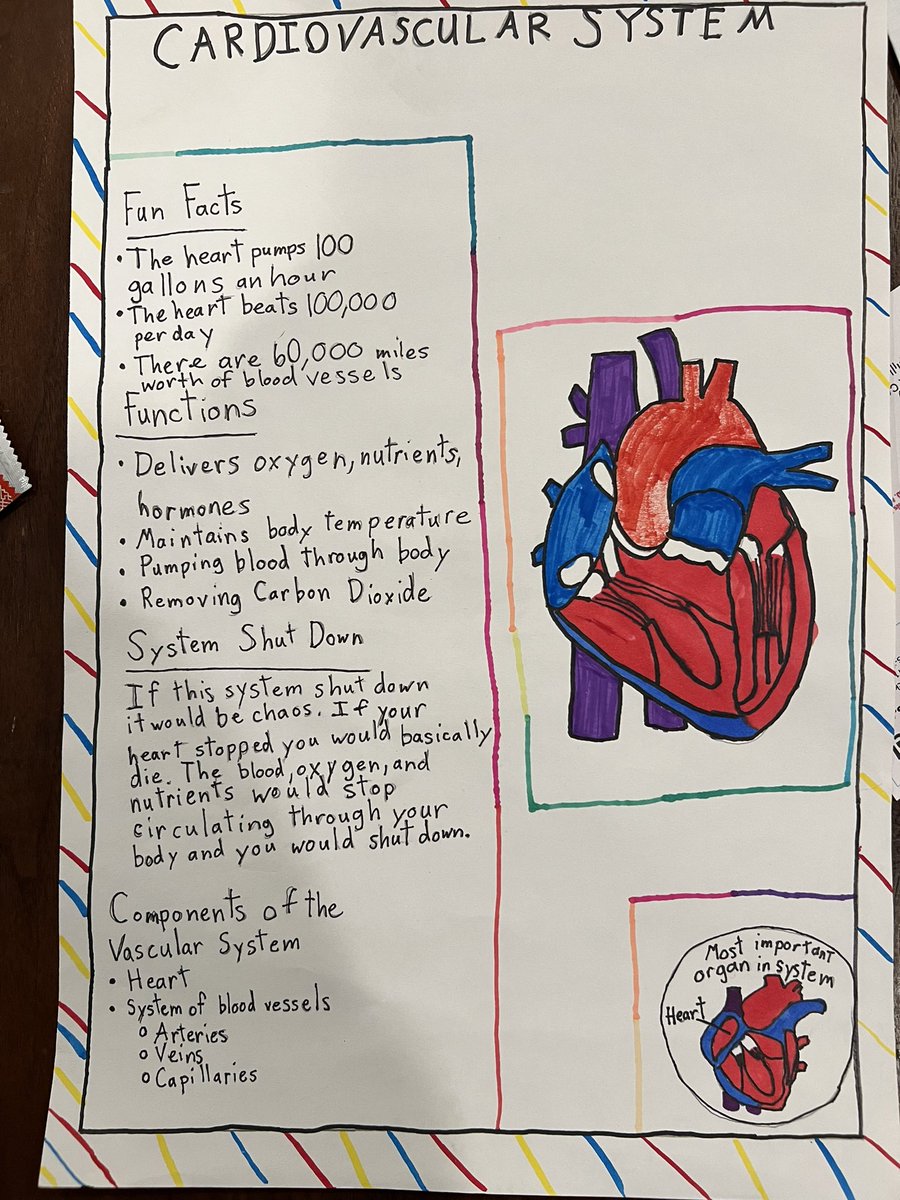 CARDIOVASCULAR SYSTEM
Fun Facts
• The heart pumps 100
gallons an hour
• The heart beats 100,000
per day
• There are 60,000 miles
worth of blood vessels
Functions
• Delivers oxygen, nutrients,
hormones
• Maintains body temperature
• Pumping blood through body
• Removing Carbon Dioxide
System Shut Down
If this system shut down
it would be chaos. If your
heart stopped you would basically
die. The blood, oxygen, and
nutrients would stop
circulating through your
body and you would shut down.
Components of the
Vascular System
• Heart
• System of blood vessels
o Arteries
o Veins
o Capillaries
Most important
organ in system
Heart